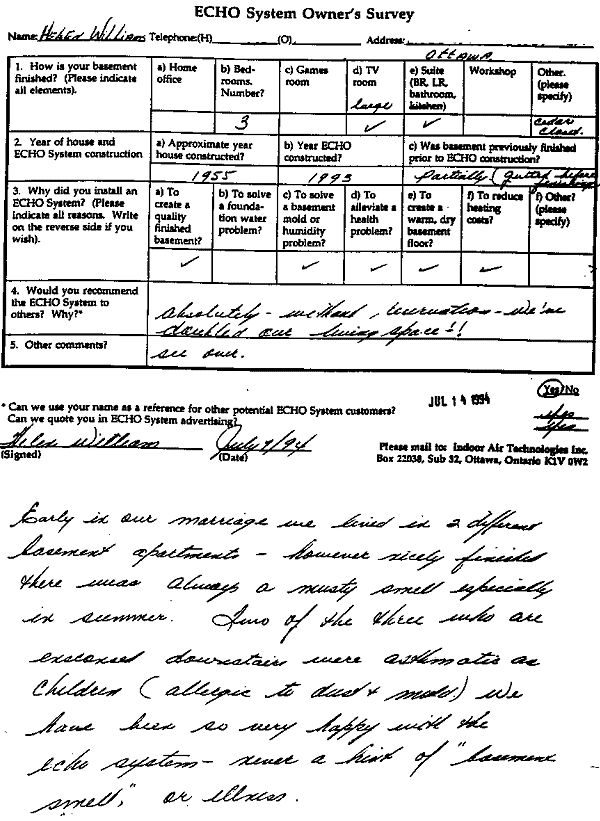 ECHO System Owner's Survey
Name: Helen William Telephone:(H) (O). Address:
Ottawa
1. How is your basement finished? (Please indicate all elements).
a) Home office
b) Bed-rooms. Number?
c) Games room
d) TV room
e) Suite (BR, LR, bathroom, kitchen)
Workshop
Other. (please specify)
3
large ✓
✓
cedar closet.
2. Year of house and ECHO System construction
a) Approximate year house constructed?
b) Year ECHO constructed?
c) Was basement previously finished prior to ECHO construction?
1955
1993
Partially (gutted before
3. Why did you install an ECHO System? (Please indicate all reasons. Write on the reverse side if you wish).
a) To create a quality finished basement?
b) To solve a founda-tion water problem?
c) To solve a basement mold or humidity problem?
d) To alleviate a health problem?
e) To create a warm, dry basement floor?
f) To reduce heating costs?
f) Other? (please specify)
✓ ✓ ✓ ✓ ✓
4. Would you recommend the ECHO System to others? Why?*
absolutely - without reservation - we've
doubled our living space!!
5. Other comments?
see over.
* Can we use your name as a reference for other potential ECHO System customers?
Can we quote you in ECHO System advertising?
JUL 14 1994
Yes/No
yes
yes
Helen William July 7/94
(Signed) (Date)
Please mail to: Indoor Air Technologies Inc.
Box 22038, Sub 32, Ottawa, Ontario K1V 0W2
Early in our marriage we lived in 2 different
basement apartments - however nicely finished
there was always a musty smell especially
in summer. Two of the three who are
ensconsed downstairs were asthmatic as
children (allergic to dust & mold) We
have been so very happy with the
echo system - never a hint of "basement
smell", or illness.